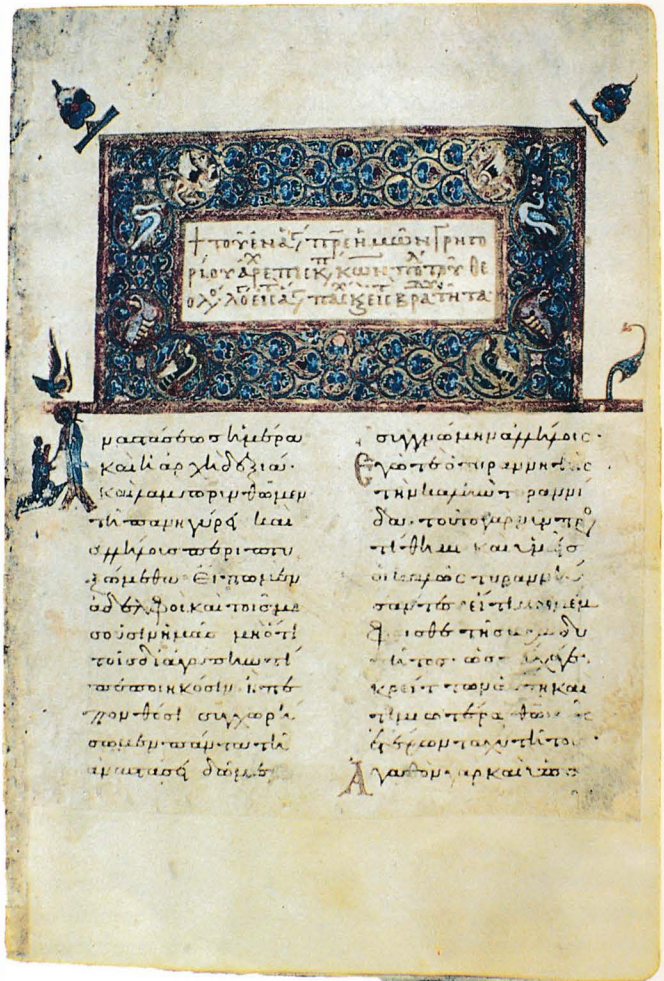 + τοῦ ἐν ἁγ πρς ἡμῶν Γρηγο
ρίου ἀρχεπισκ κων π τοῦ θε
ολγ λο εἰς ἁγ πάσχ κ εἰς βραδτητα
ναστάσεως ἡμέρα
καὶ ἡ ἀρχὴ δεξιά·
καὶ λαμπρυνθῶμεν
τῇ πανηγύρει καὶ
ἀλλήλους περιπτυ
ξώμεθα· Εἴπωμεν
ἀδελφοὶ καὶ τοῖς μι
σοῦσιν ἡμᾶς μὴ ὅτι
τοῖς δι' ἀγάπην τι
πεποιηκόσιν ἢ πε
πονθόσι συγχωρή
σωμεν πάντα τῇ
ἀναστάσει δῶμεν
συγγνώμην ἀλλήλοις·
Ἐγώ τε ὁ τυραννηθεὶς
τὴν καλὴν τυραννί
δα· τοῦτο γὰρ νῦν προσ
τίθημι καὶ ὑμεῖς
οἱ καλῶς τυραννή
σαντες εἴ τί μοι μέμ
φοισθε τῆς βραδυ
τῆτος· ὡς τάχα γε
κρείττων αὕτη καὶ
τιμιωτέρα θεῷ τῆς
ἑτέρων ταχυτῆτος·
Ἀγαθὸν γὰρ καὶ